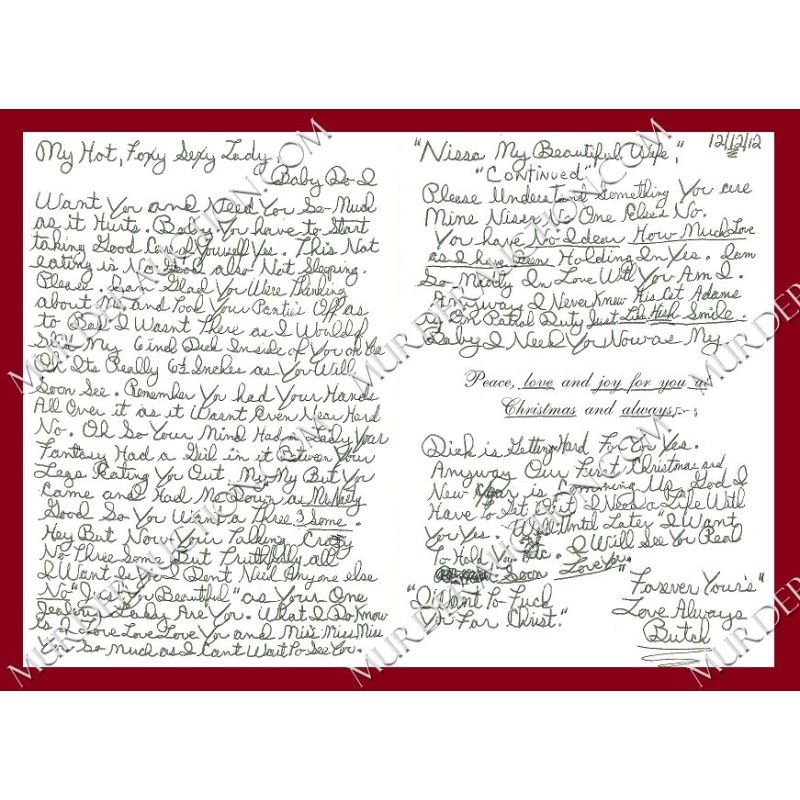 My Hot, Foxy Sexy Lady,
Baby Do I
Want You and Need You So Much
as it Hurts. Baby You have to Start
taking Good Care of Yourself Yes. This Not
eating is No Good also Not Sleeping.
Please. I am Glad You Were Thinking
about Me and Took Your Pantie's Off as
to Bad I Wasnt There as I Would
My 6 ind Dick Inside of You oh Me
Or Its Really 6½ Inches as You Will
Soon See. Remember You had Your Hands
All Over it as it Wasnt Even Near Hard
No. Oh So Your Mind Had a Lady Your
Fantasy Had a Girl in it Between Your
Legs Eating You Out. My My But You
Came and Had Me Down as Mr Nasty
Good So You Want a Three 3 Some.
Hey But Now Your Talking Crazy
No Three Some But Truthfully all
I Want is You I Dent Need Anyone else
No "You are You Beautiful" as Your One
Baby Are You. What I Do Know
Is I Love Love Love You and Miss Miss Miss
You So Much as I Cant Wait To See You.
"Nissa My Beautiful Wife,"
12/12/12
"Continued"
Please Understand Something You are
Mine Nissa No One Else's No.
You have No Idear How Much Love
as I have Been Holding In Yes. I am
So Madly In Love With You Am I.
Anyway I Never Knew Adams
On Patrol Duty Just Like High Smile.
Baby I Need You Now as My
Peace, love and joy for you at
Christmas and always
Dick is Getting Hard For You Yes.
Anyway Our First Christmas and
New Year is Comming Up God I
Have to Get Out I Need a Life With
You Yes. Well Until Later "I Want
To Hold You etc. I Will See You Real
Soon Love You"
"I Want To Fuck
Or Far Christ."
Forever Your's"
Love Always
Butch
MURDERAUCTION.COM